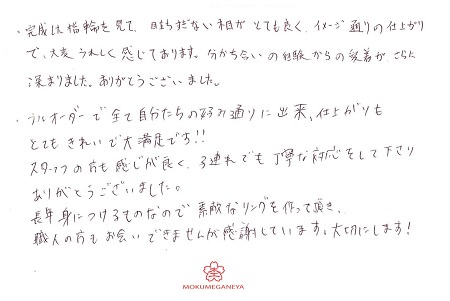 ・完成した指輪を見て、目立ちすぎない木目がとても良く、イメージ通りの仕上がり
で、大変うれしく感じております。分かち合いの体験からの愛着がさらに
深まりました。ありがとうございました。
・フルオーダーで全て自分たちの好み通りに出来、仕上がりも
とてもきれいで大満足です!!
スタッフの方も感じが良く、子連れでも丁寧な対応をして下さり
ありがとうございました。
長年身につけるものなので素敵なリングを作って頂き、
職人の方もお会いできませんが感謝しています。大切にします!
MOKUMEGANEYA